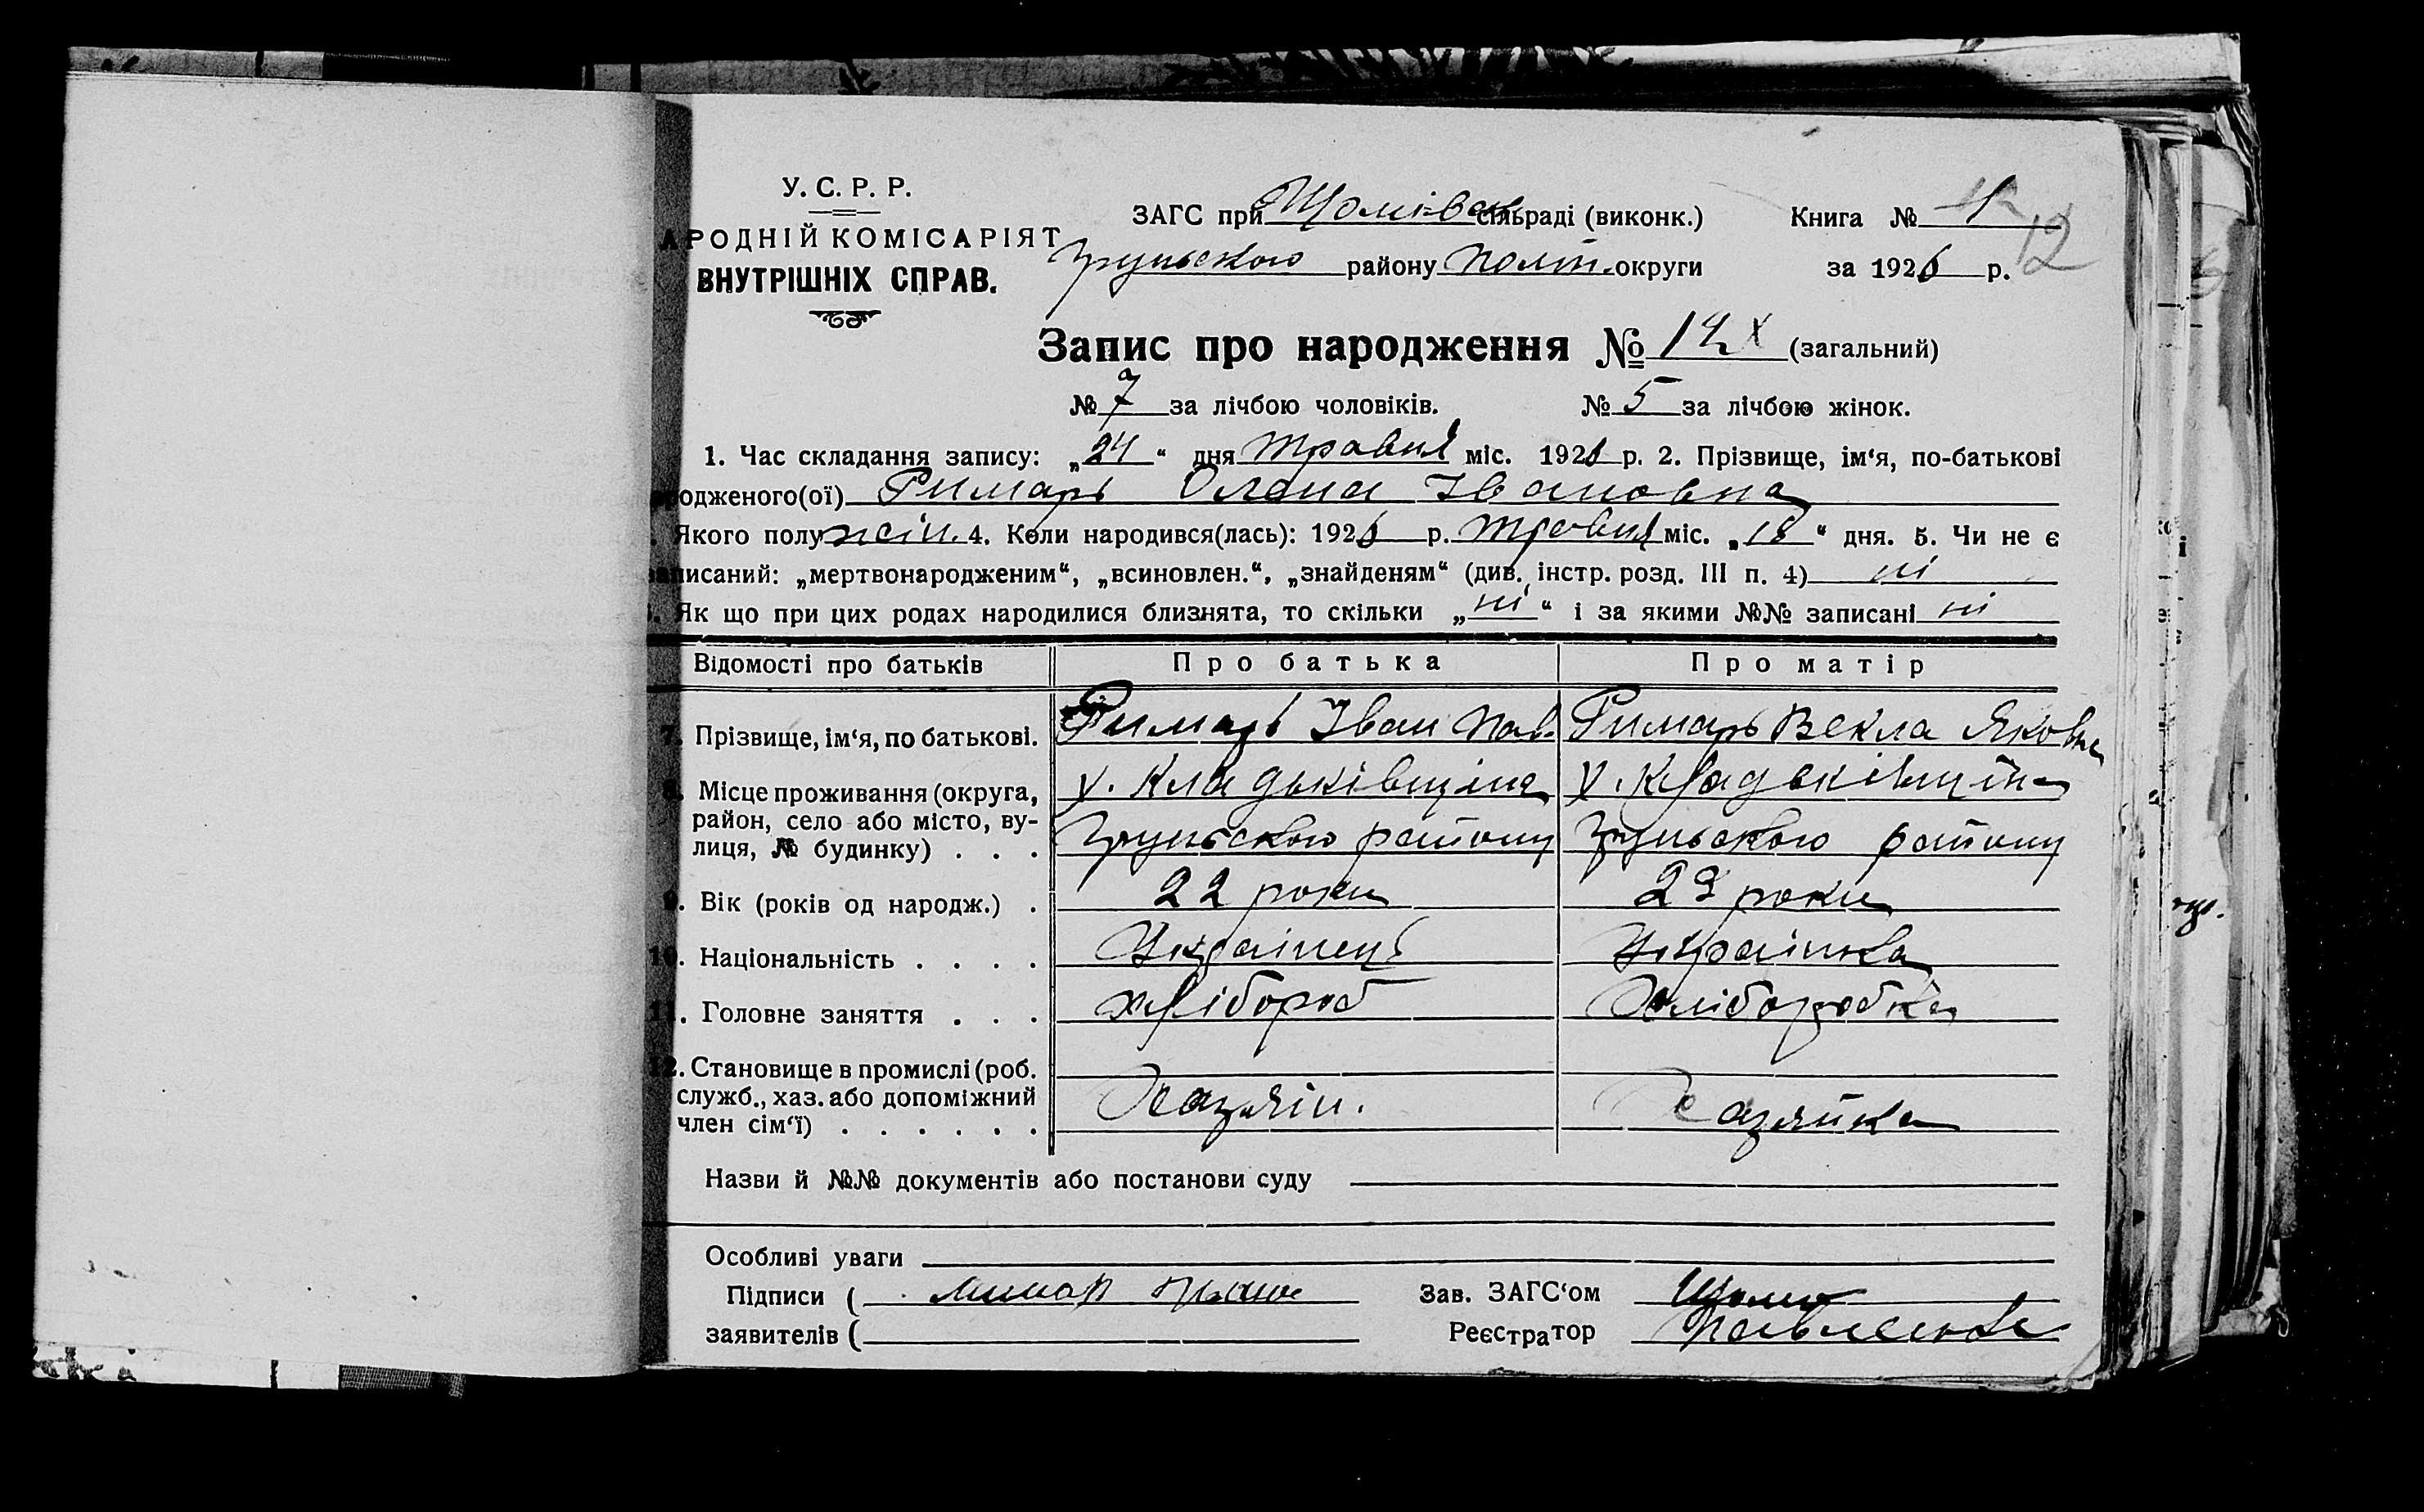 У. С. Р. Р.
АРОДНІЙ КОМІСАРІЯТ
ВНУТРІШНІХ СПРАВ.
ЗАГС при сільраді (виконк.)
Грунського району Полт. округи
Книга № 1
12
за 1926 р.
Запис про народження № 12 х (загальний)
№ 7 за лічбою чоловіків. № 5 за лічбою жінок.
1. Час складання запису: „24“ дня травня міс. 1926 р. 2. Прізвище, ім‘я, по-батькові
родженого(ої) Римарь Олена Івановна
Якого полу жін. 4. Коли народився(лась): 1926 р. травня міс. „18“ дня. 5. Чи не є
записаний: „мертвонародженим“, „всиновлен.“, „знайденям“ (див. інстр. розд. III п. 4) ні
6. Як що при цих родах народилися близнята, то скільки „ні“ і за якими №№ записані ні
Відомості про батьків Про батька Про матір
7. Прізвище, ім‘я, по батькові. Римарь Іван Пав. Римарь Векла Яковна
8. Місце проживання (округа, х. Кладьківщина х. Кладьківщина
район, село або місто, ву-
лиця, № будинку) . . . Грунського району Грунського району
9. Вік (років од народж.) . 22 роки 23 роки
10. Національність . . . . Українець Українка
11. Головне заняття . . . хлібороб хліборобка
12. Становище в промислі (роб.
служб., хаз. або допоміжний Хазяін. Хазяйка
член сім‘ї) . . . . . .
Назви й №№ документів або постанови суду
Особливі уваги
Підписи (
Зав. ЗАГС‘ом
заявителів (
Реєстратор Павленко